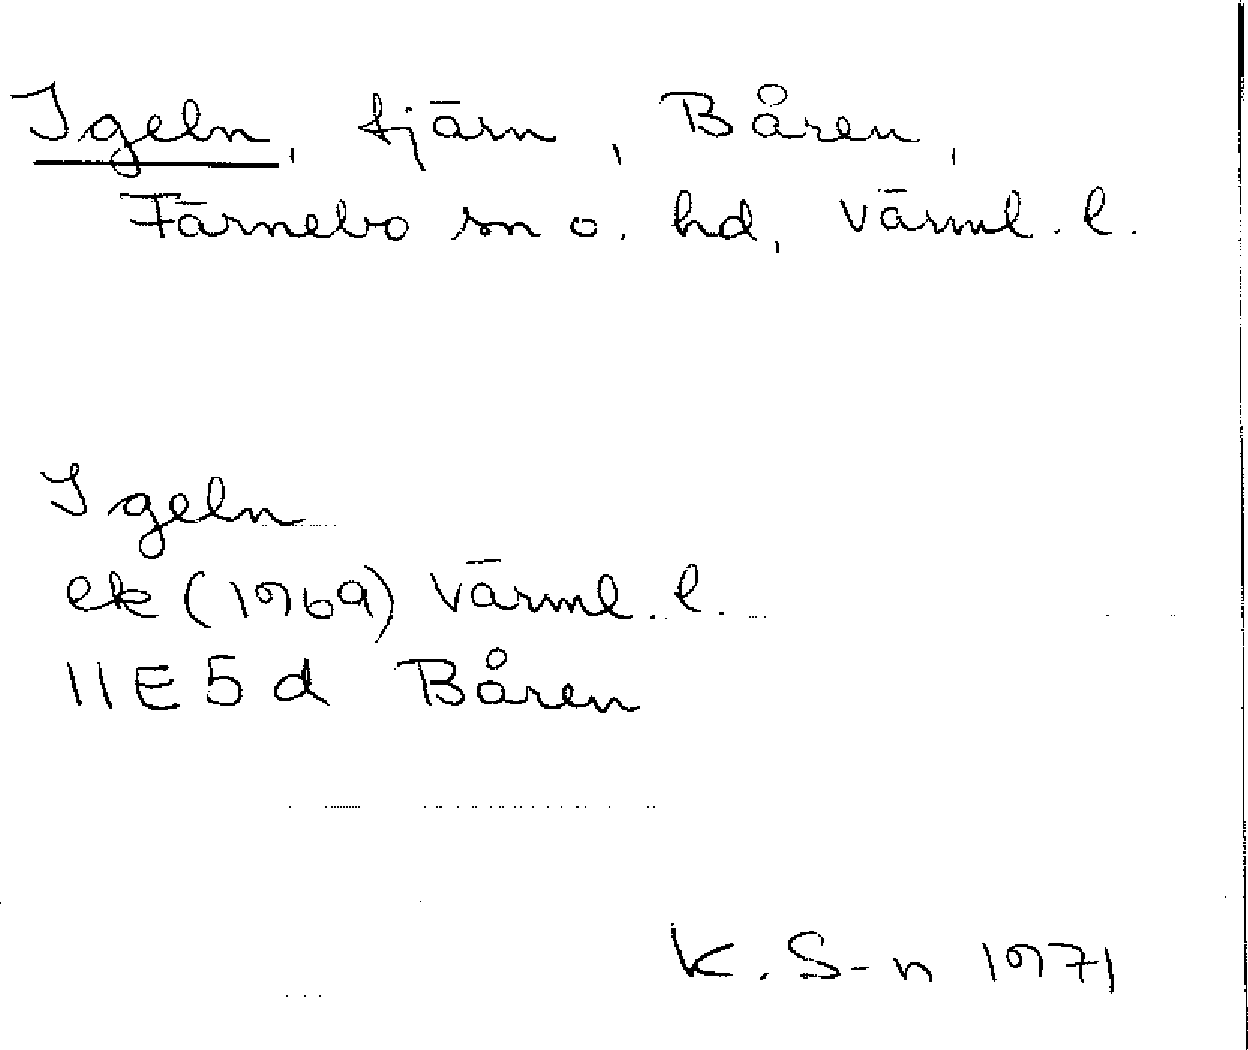 Igeln, tjärn, Båren,
Färnebo sn o. hd, Värml. l.
Igeln
ek (1969) Värml. l.
11E5d Båren
K. S-n 1971